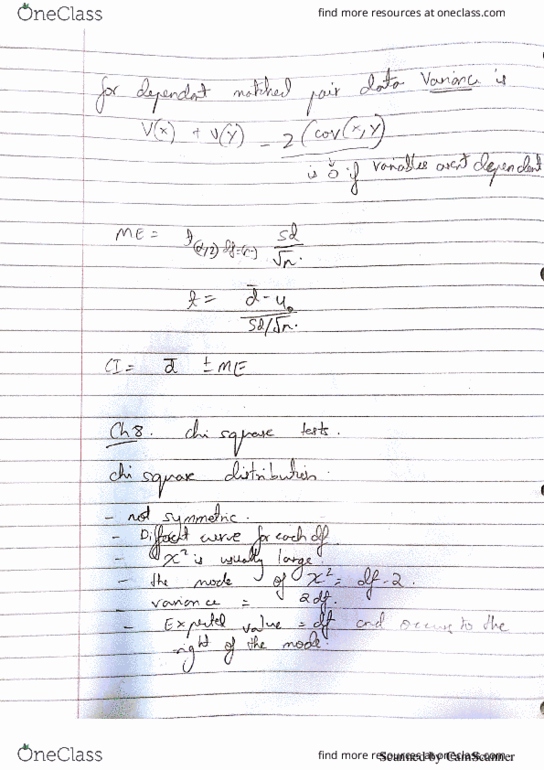 OneClass
find more resources at oneclass.com
for dependent matched pair data Variance is
V(x) + V(y) - 2(cov(x,y)
is 0 if variables arent dependent
ME = t(α/2) df=(n-1) sd/√n.
t = d̄ - u₀ / sd/√n.
CI = d̄ ± ME
Ch 8. chi square tests.
chi square distribution.
- not symmetric.
- Different curve for each df
- X² is usually large
- the mode of X² = df - 2.
- variance = 2df.
- Expected value = df and occurs to the
right of the mode.
OneClass
find more resources at oneclass.com
Scanned by CamScanner